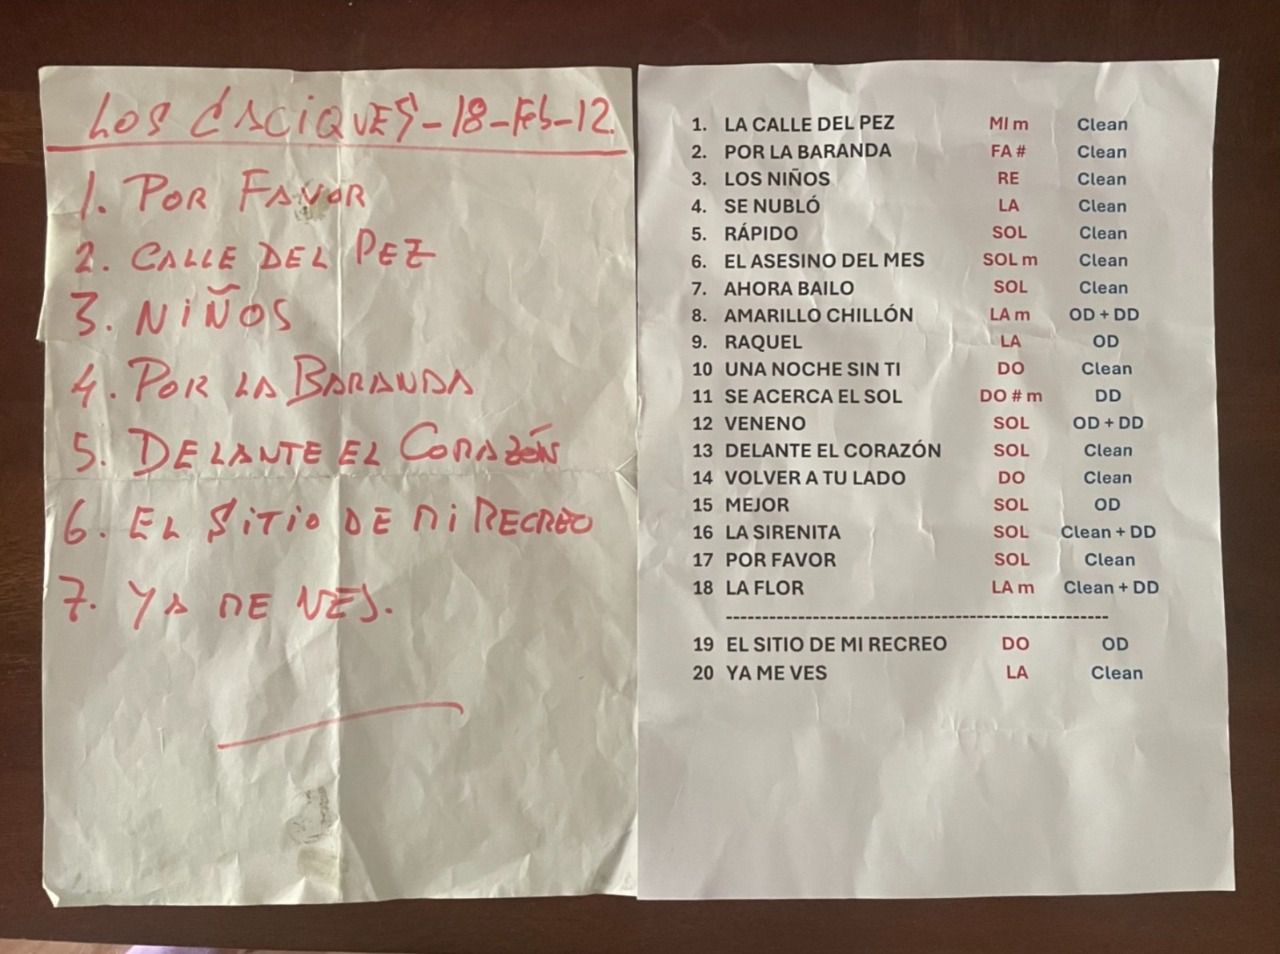 LOS CACIQUES-18-Feb-12.
1. POR FAVOR
2. CALLE DEL PEZ
3. NIÑOS
4. POR LA BARANDA
5. DELANTE EL CORAZÓN
6. EL SITIO DE MI RECREO
7. YA ME VES.
1. LA CALLE DEL PEZ MI m Clean
2. POR LA BARANDA FA # Clean
3. LOS NIÑOS RE Clean
4. SE NUBLÓ LA Clean
5. RÁPIDO SOL Clean
6. EL ASESINO DEL MES SOL m Clean
7. AHORA BAILO SOL Clean
8. AMARILLO CHILLÓN LA m OD + DD
9. RAQUEL LA OD
10 UNA NOCHE SIN TI DO Clean
11 SE ACERCA EL SOL DO # m DD
12 VENENO SOL OD + DD
13 DELANTE EL CORAZÓN SOL Clean
14 VOLVER A TU LADO DO Clean
15 MEJOR SOL OD
16 LA SIRENITA SOL Clean + DD
17 POR FAVOR SOL Clean
18 LA FLOR LA m Clean + DD
-----------------------------------------------------
19 EL SITIO DE MI RECREO DO OD
20 YA ME VES LA Clean